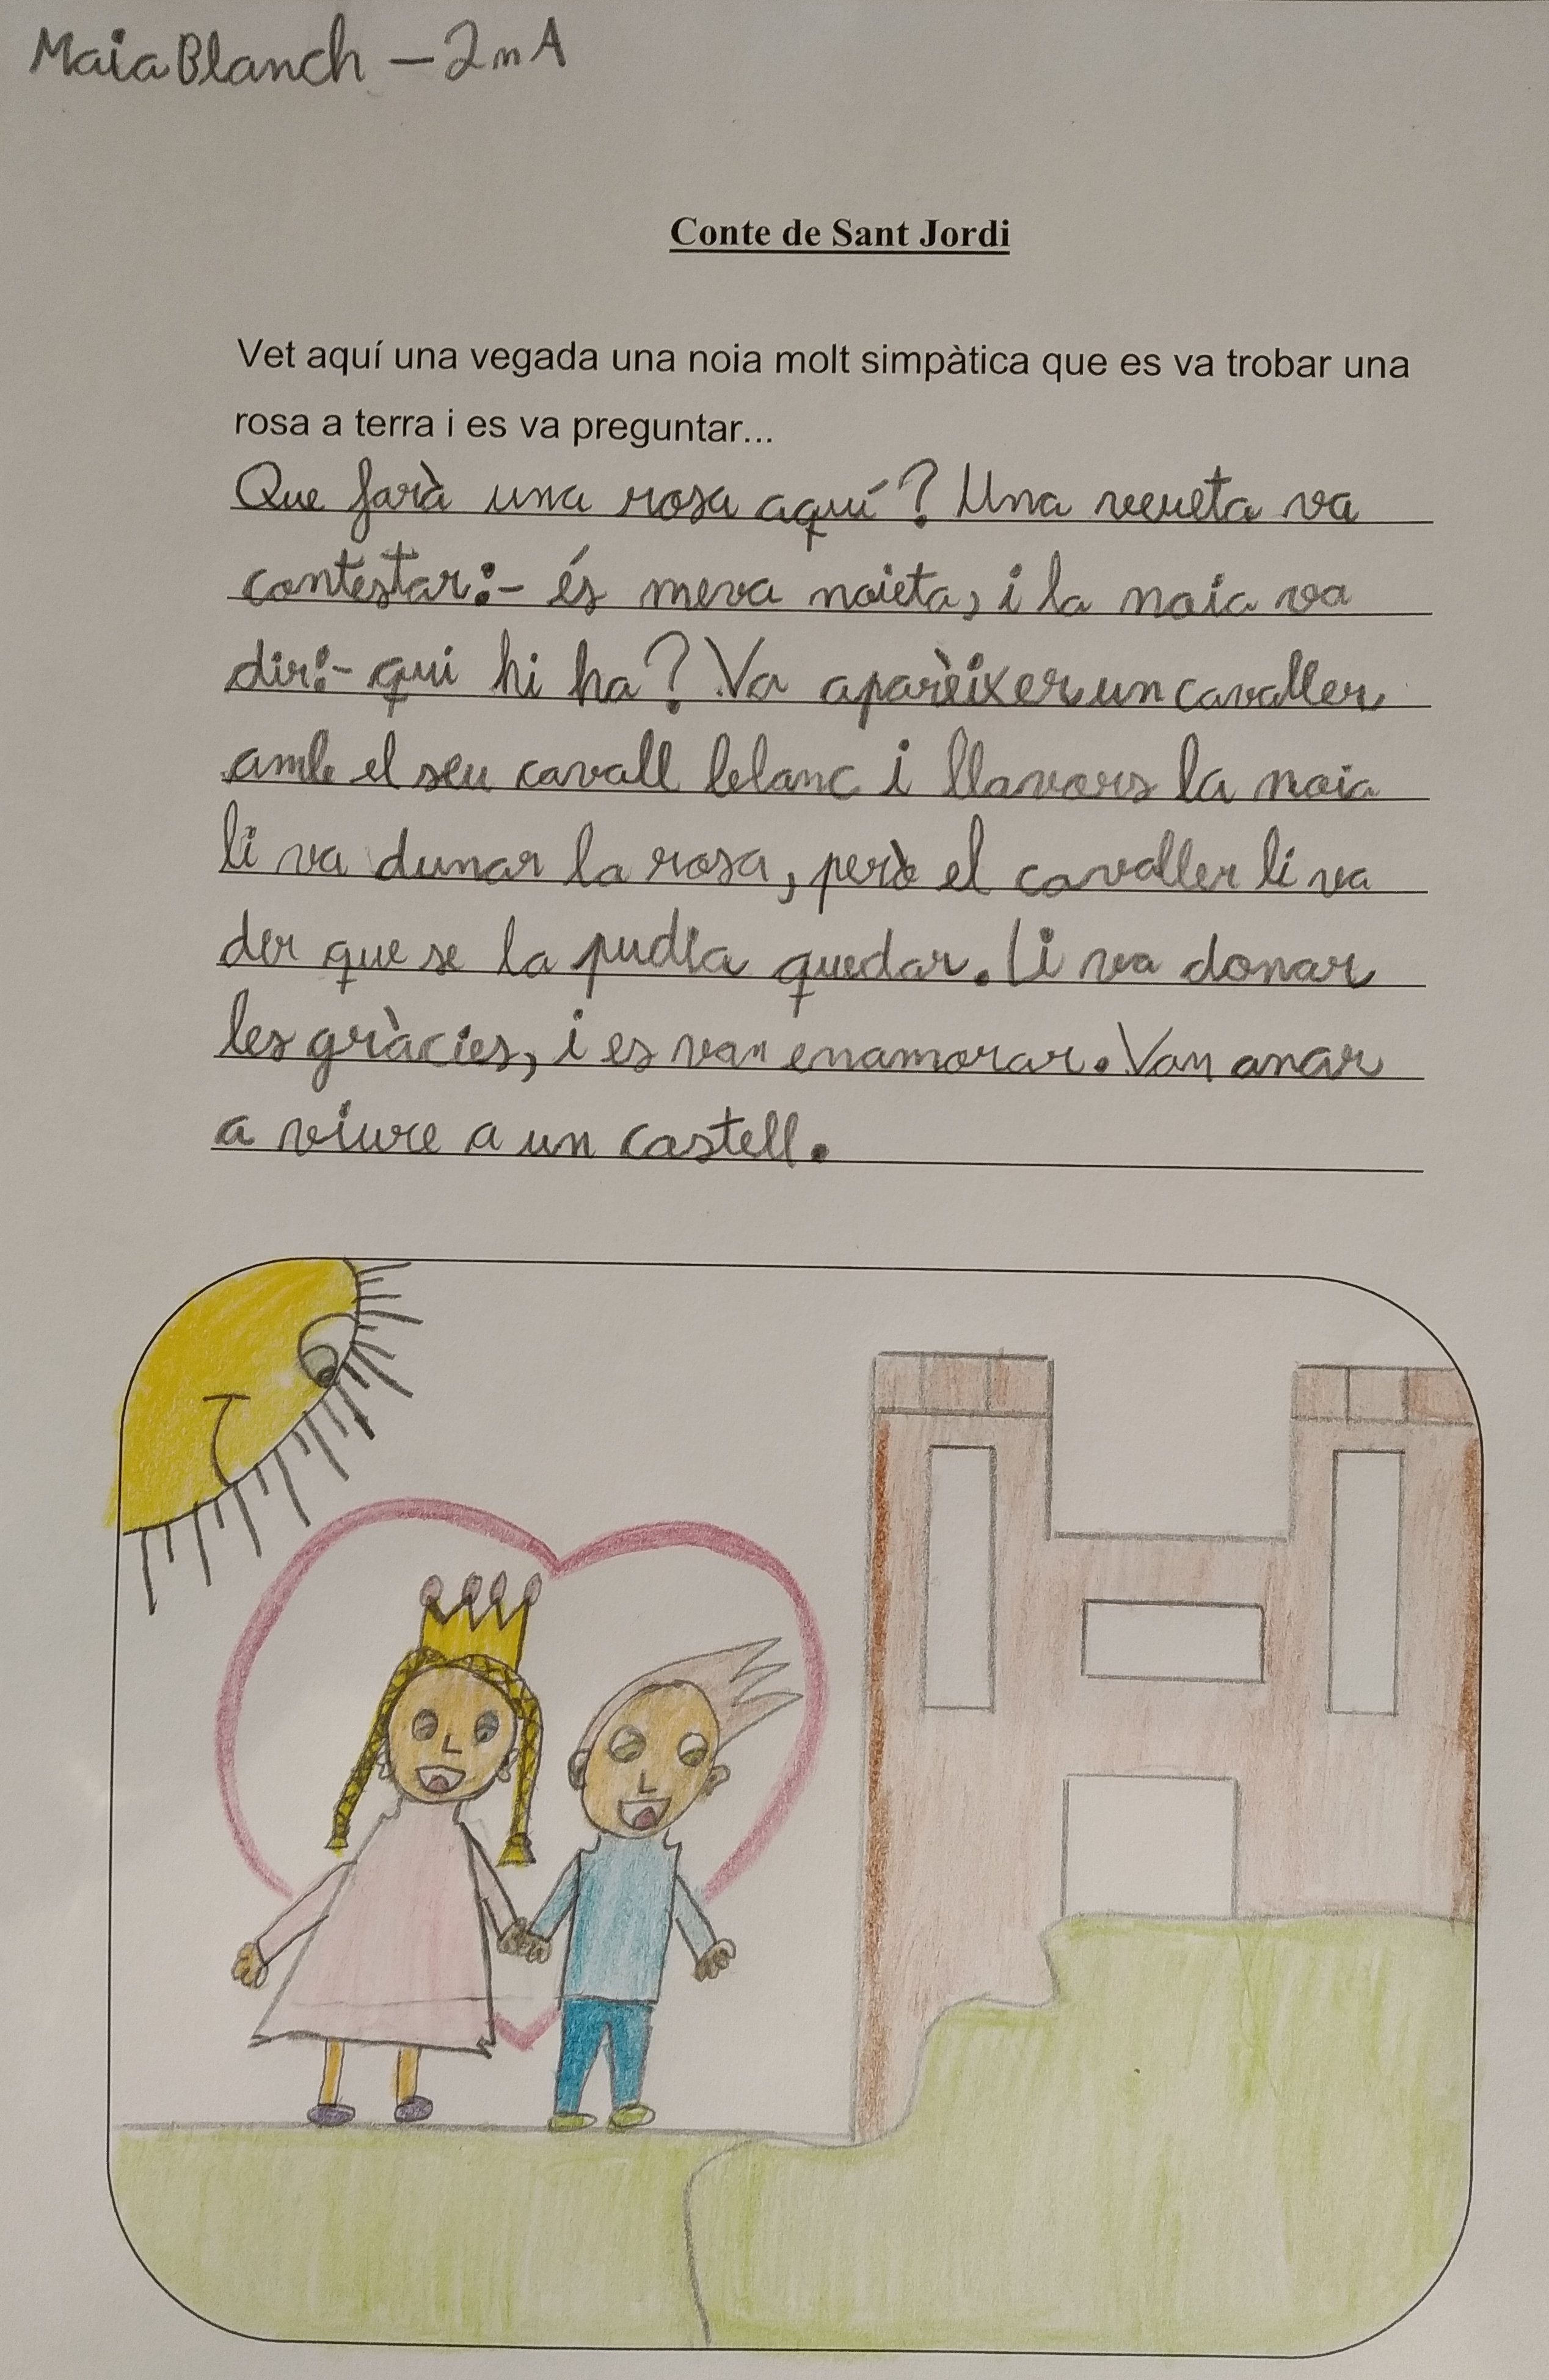 Maia Blanch - 2n A
Conte de Sant Jordi
Vet aquí una vegada una noia molt simpàtica que es va trobar una
rosa a terra i es va preguntar...
Que farà una rosa aquí? Una veueta va
contestar:- és meva noieta, i la noia va
dir:- qui hi ha? Va aparèixer un cavaller
amb el seu cavall blanc i llavors la noia
li va dunar la rosa, però el cavaller li va
dir que se la pudia quedar. Li va donar
les gràcies, i es van enamorar. Van anar
a viure a un castell.